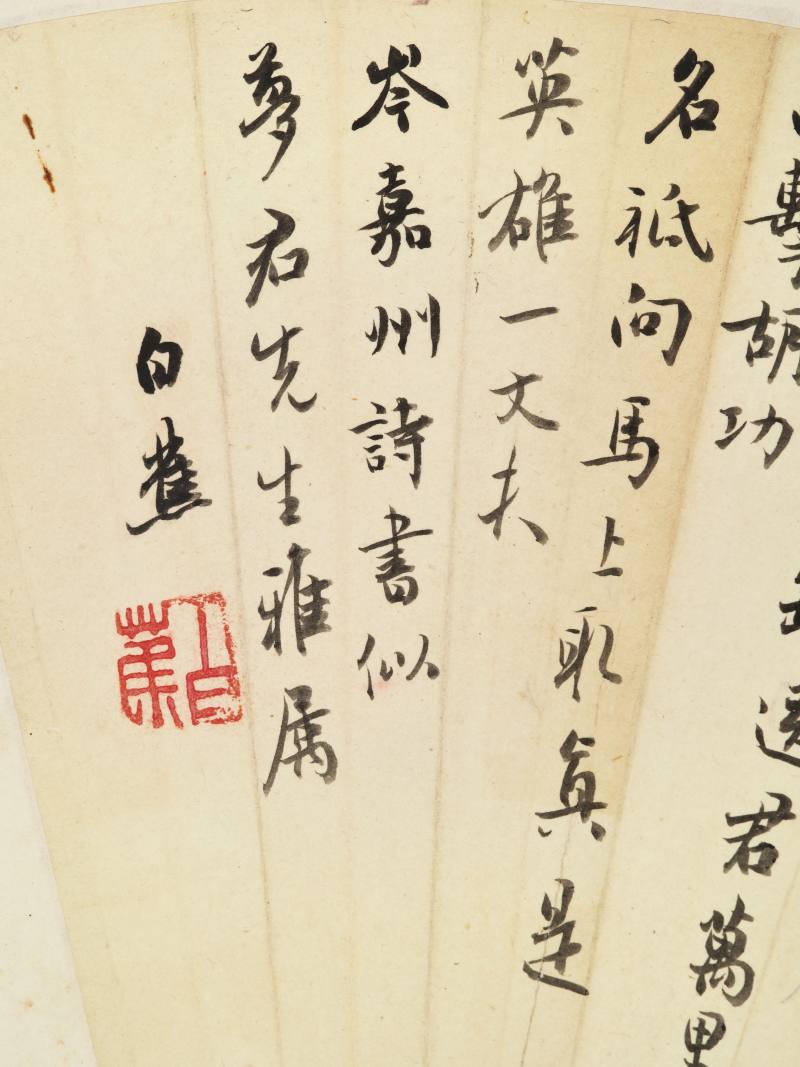 送君萬里
擊胡功
名祗向馬上取真是
英雄一丈夫
岑嘉州詩書似
夢君先生雅属
白蕉